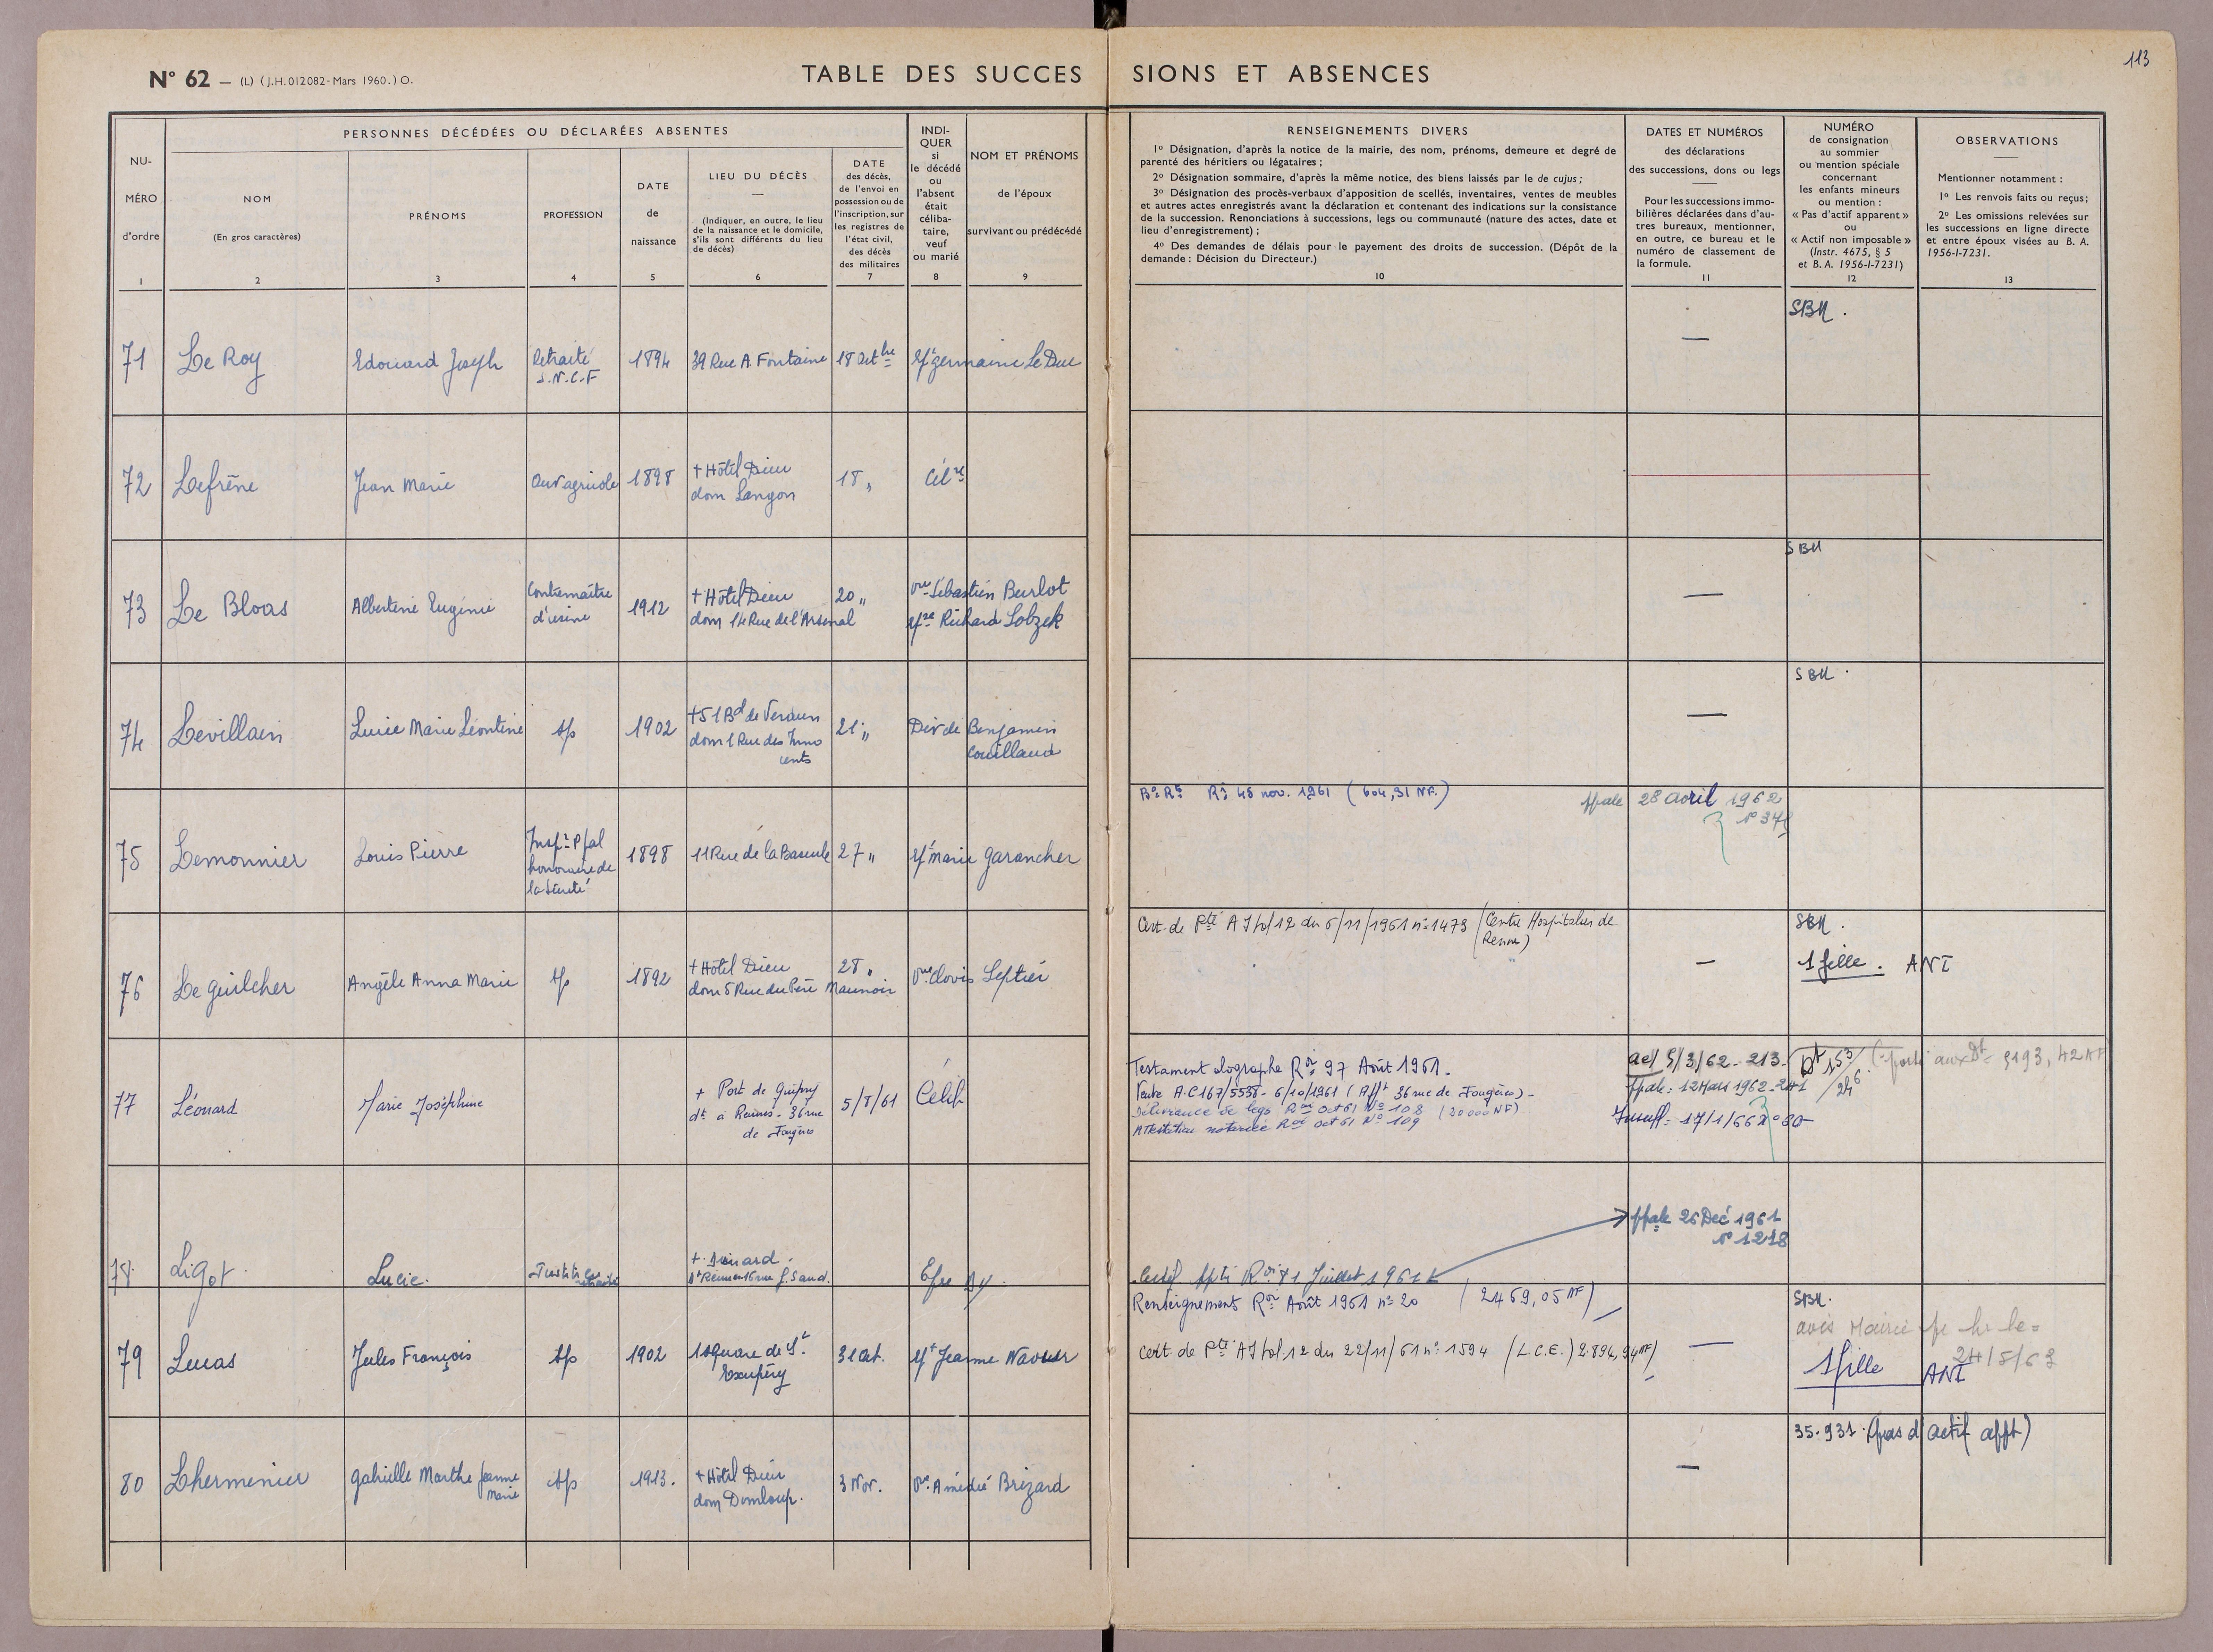 113
N° 62 — (L) (J.H. 012082 - Mars 1960.) O.
TABLE DES SUCCESSIONS ET ABSENCES
NU-
MÉRO
d'ordre
1
PERSONNES DÉCÉDÉES OU DÉCLARÉES ABSENTES
NOM
(En gros caractères)
2
PRÉNOMS
3
PROFESSION
4
DATE
de
naissance
5
LIEU DU DÉCÈS
(Indiquer, en outre, le lieu
de la naissance et le domicile,
s'ils sont différents du lieu
de décès)
6
DATE
des décès,
de l'envoi en
possession ou de
l'inscription, sur
les registres de
l'état civil,
des décès
des militaires
7
INDI-
QUER
si
le décédé
ou
l'absent
était
céliba-
taire,
veuf
ou marié
8
NOM ET PRÉNOMS
de l'époux
survivant ou prédécédé
9
RENSEIGNEMENTS DIVERS
1° Désignation, d'après la notice de la mairie, des nom, prénoms, demeure et degré de
parenté des héritiers ou légataires ;
2° Désignation sommaire, d'après la même notice, des biens laissés par le de cujus ;
3° Désignation des procès-verbaux d'apposition de scellés, inventaires, ventes de meubles
et autres actes enregistrés avant la déclaration et contenant des indications sur la consistance
de la succession. Renonciations à successions, legs ou communauté (nature des actes, date et
lieu d'enregistrement) ;
4° Des demandes de délais pour le payement des droits de succession. (Dépôt de la
demande : Décision du Directeur.)
10
DATES ET NUMÉROS
des déclarations
des successions, dons ou legs
Pour les successions immo-
bilières déclarées dans d'au-
tres bureaux, mentionner,
en outre, ce bureau et le
numéro de classement de
la formule.
11
NUMÉRO
de consignation
au sommier
ou mention spéciale
concernant
les enfants mineurs
ou mention :
« Pas d'actif apparent »
ou
« Actif non imposable »
(Instr. 4675, § 5
et B. A. 1956-I-7231)
12
OBSERVATIONS
Mentionner notamment :
1° Les renvois faits ou reçus ;
2° Les omissions relevées sur
les successions en ligne directe
et entre époux visées au B. A.
1956-I-7231.
13
71 Le Roy Edouard Joseph Retraité 1894 39 Rue A. Fontaine 18 Octbre germaine Le Duc — SBM.
S.N.C.F
72 Lefrêne Jean Marie Ouv agricole 1898 + Hôtel Dieu 18 " Célre
dom Langon
73 Le Bloas Albertine Eugénie Contremaitre 1912 + Hôtel Dieu 20 " Vve Sébastien Burlot — SBM
d'usine dom 14 Rue de l'Arsenal Richard Lobzek
74 Levillain Lucie Marie Léontine sp 1902 + 51 Bd de Verdun 21 " Div de Benjamin — SBM.
dom 1 Rue des Inno Couillaud
cents
75 Lemonnier Louis Pierre 1898 11 Rue de la Bascule 27 " Marie Garancher nov. 1961 (604,31 NF.) 28 avril 1962
honoraire de
la Sûreté
76 Le Guilcher Angèle Anna Marie sp 1892 + Hôtel Dieu 28 " Vve Clovis Leptier Cert. de Pté 6/11/1961 n° 1473 (Centre Hospitalier de — SBM.
dom 5 Rue du Père Maunoir Rennes) 1 fille. ANI
77 Léonard Marie Joséphine + Port de Guipry 5/8/61 Célib Testament olographe Ror 97 Août 1961. 5/3/62 - 213
dt à Rennes - 36 rue Vente A.C 167/5538 - 6/10/1961 (Afft 36 rue de Fougères) - 12 Mars 1962 - 241
de Fougères Délivrance de legs Ror oct 61 N° 108 (20 000 NF) Insuff: 17/1/66
Attestation notariée Ror oct 61 N° 109
78 Ligot Lucie. + Dinard. Juillet 1961 26 Déc 1961
n° 1218
79 Lucas Jules François sp 1902 1 Square de St. 31 Oct. Jeanne Renseignement Ror Août 1961 n° 20 (2469,05 NF) — SBM.
Exupéry cert de Pté 22/11/61 n° 1594 (L.C.E.) 2.894,94 NF) avis Mairie
24/5/63
1 fille ANI
80 Lhermenier Gabrielle Marthe Jeanne sp 1913. + Hôtel Dieu 3 Nov. Vve Amédée Brizard — 35.931. (pas d'actif appt)
Marie dom Domloup.